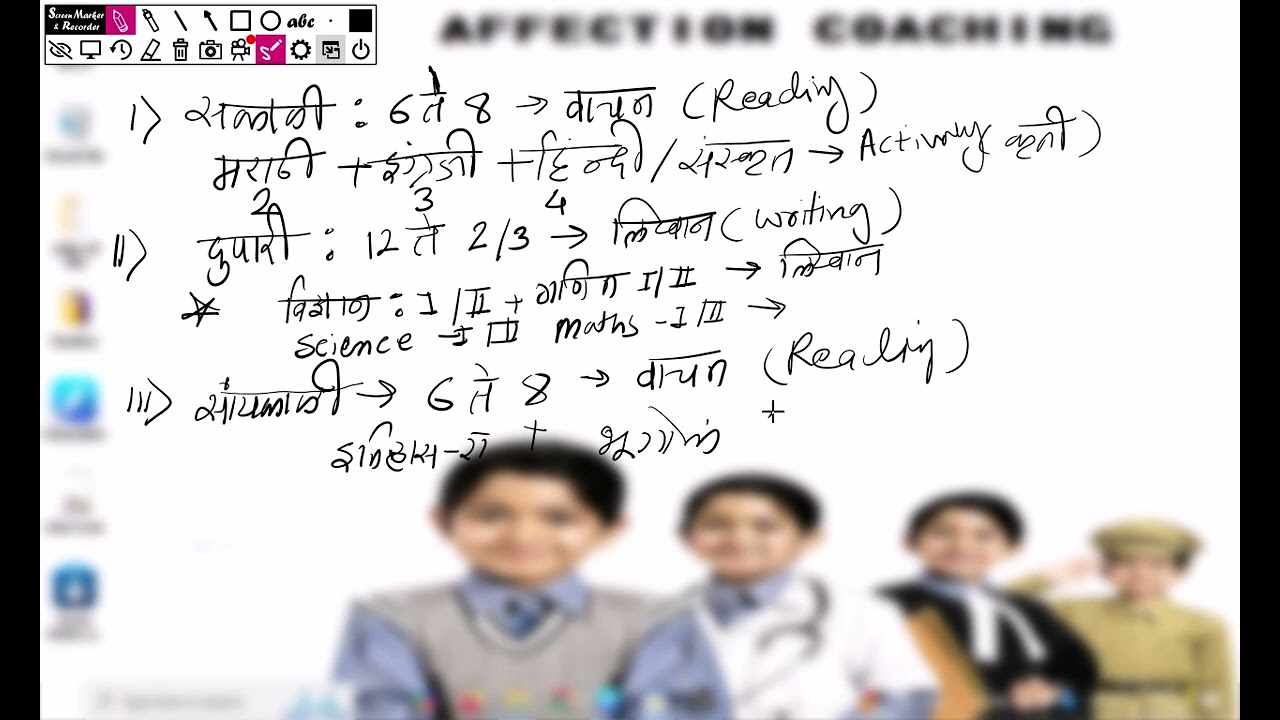 Screen Marker & Recorder abc
AFFECTION COACHING
I) सकाळी : 6 ते 8 → वाचन (Reading)
मराठी + इंग्रजी + हिन्दी / संस्कृत → Activity कृती)
2 3 4
II) दुपारी : 12 ते 2/3 → लिखान (writing)
* विज्ञान : I/II + गणित I/II → लिखान
Science - I/II Maths - I/II →
III) सायंकाळी → 6 ते 8 → वाचन (Reading)
इतिहास-रा + भूगोल +